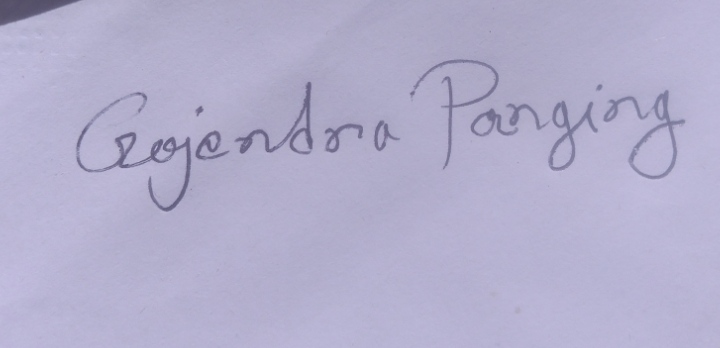 Gojendra Panging